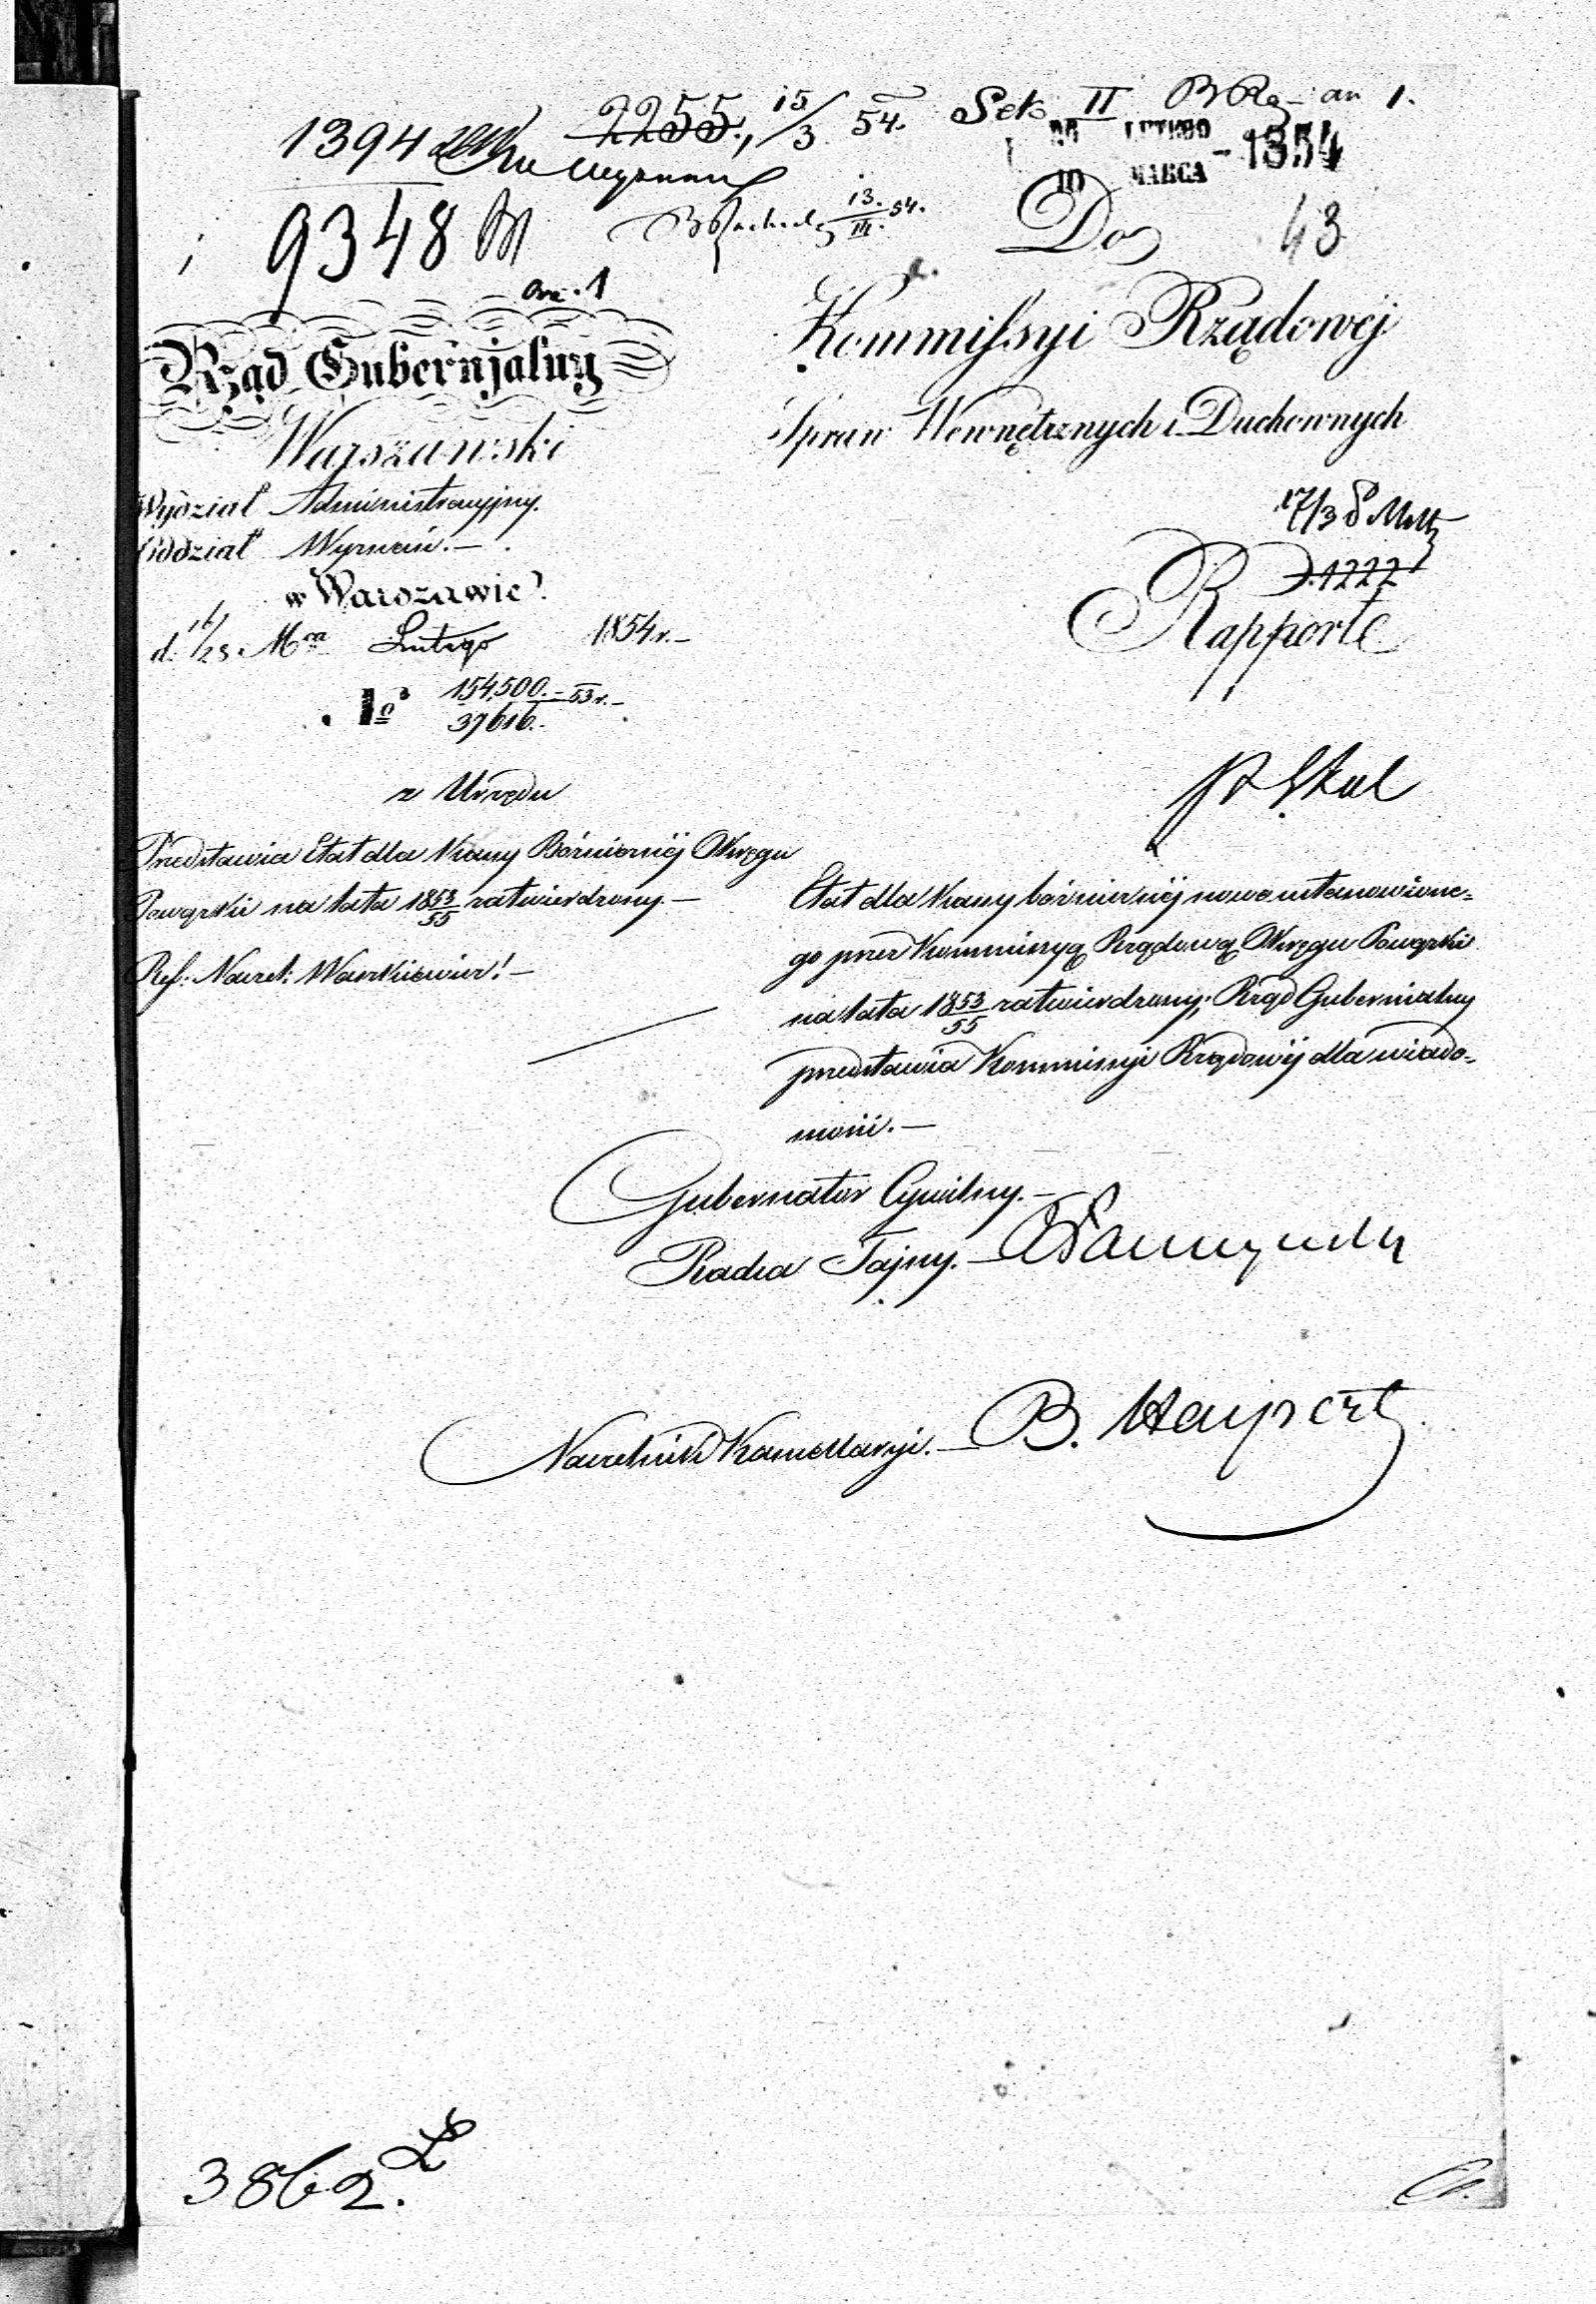 1394
2255, 15/3 54. Sek II
26 LUTEGO
10 MARCA - 1854
9348
13./III. 54.
Do
43
Ore. 1
Kommissyi Rządowéj
Rząd Gubernjalny
Warszawski
Spraw Wewnętrznych i Duchownych
Wydział Administracyjny.
17/3
Oddział Wyznań. —
w Warszawie
D. 1222
d. 16/28 Mca Lutego 1854 r. —
Rapporte
No 154,500. — 53 r. —
37616. —
z Urzędu
Przedstawia Etat dla Kassy Bóżniczéj Okręgu
Powązki na lata 1853/55 zatwierdzony. —
Ref: Naczel: Wasskiewicz! —
Etat dla Kassy bóżniczéj nowo ustanowione=
go przez Kommissyą Rządową Okręgu Powązki
na lata 1853/55 zatwierdzony; Rząd Gubernialny
przedstawia Kommissyi Rządowéj dla wiado=
mości. —
Gubernator Cywilny. —
Radca Tajny. —
Naczelnik Kancellaryi. — B. Haypert
3862.